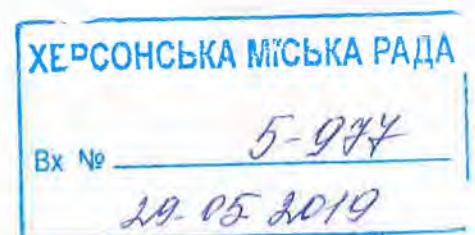 ХЕРСОНСЬКА МІСЬКА РАДА
Вх № 5-977
29.05 2019